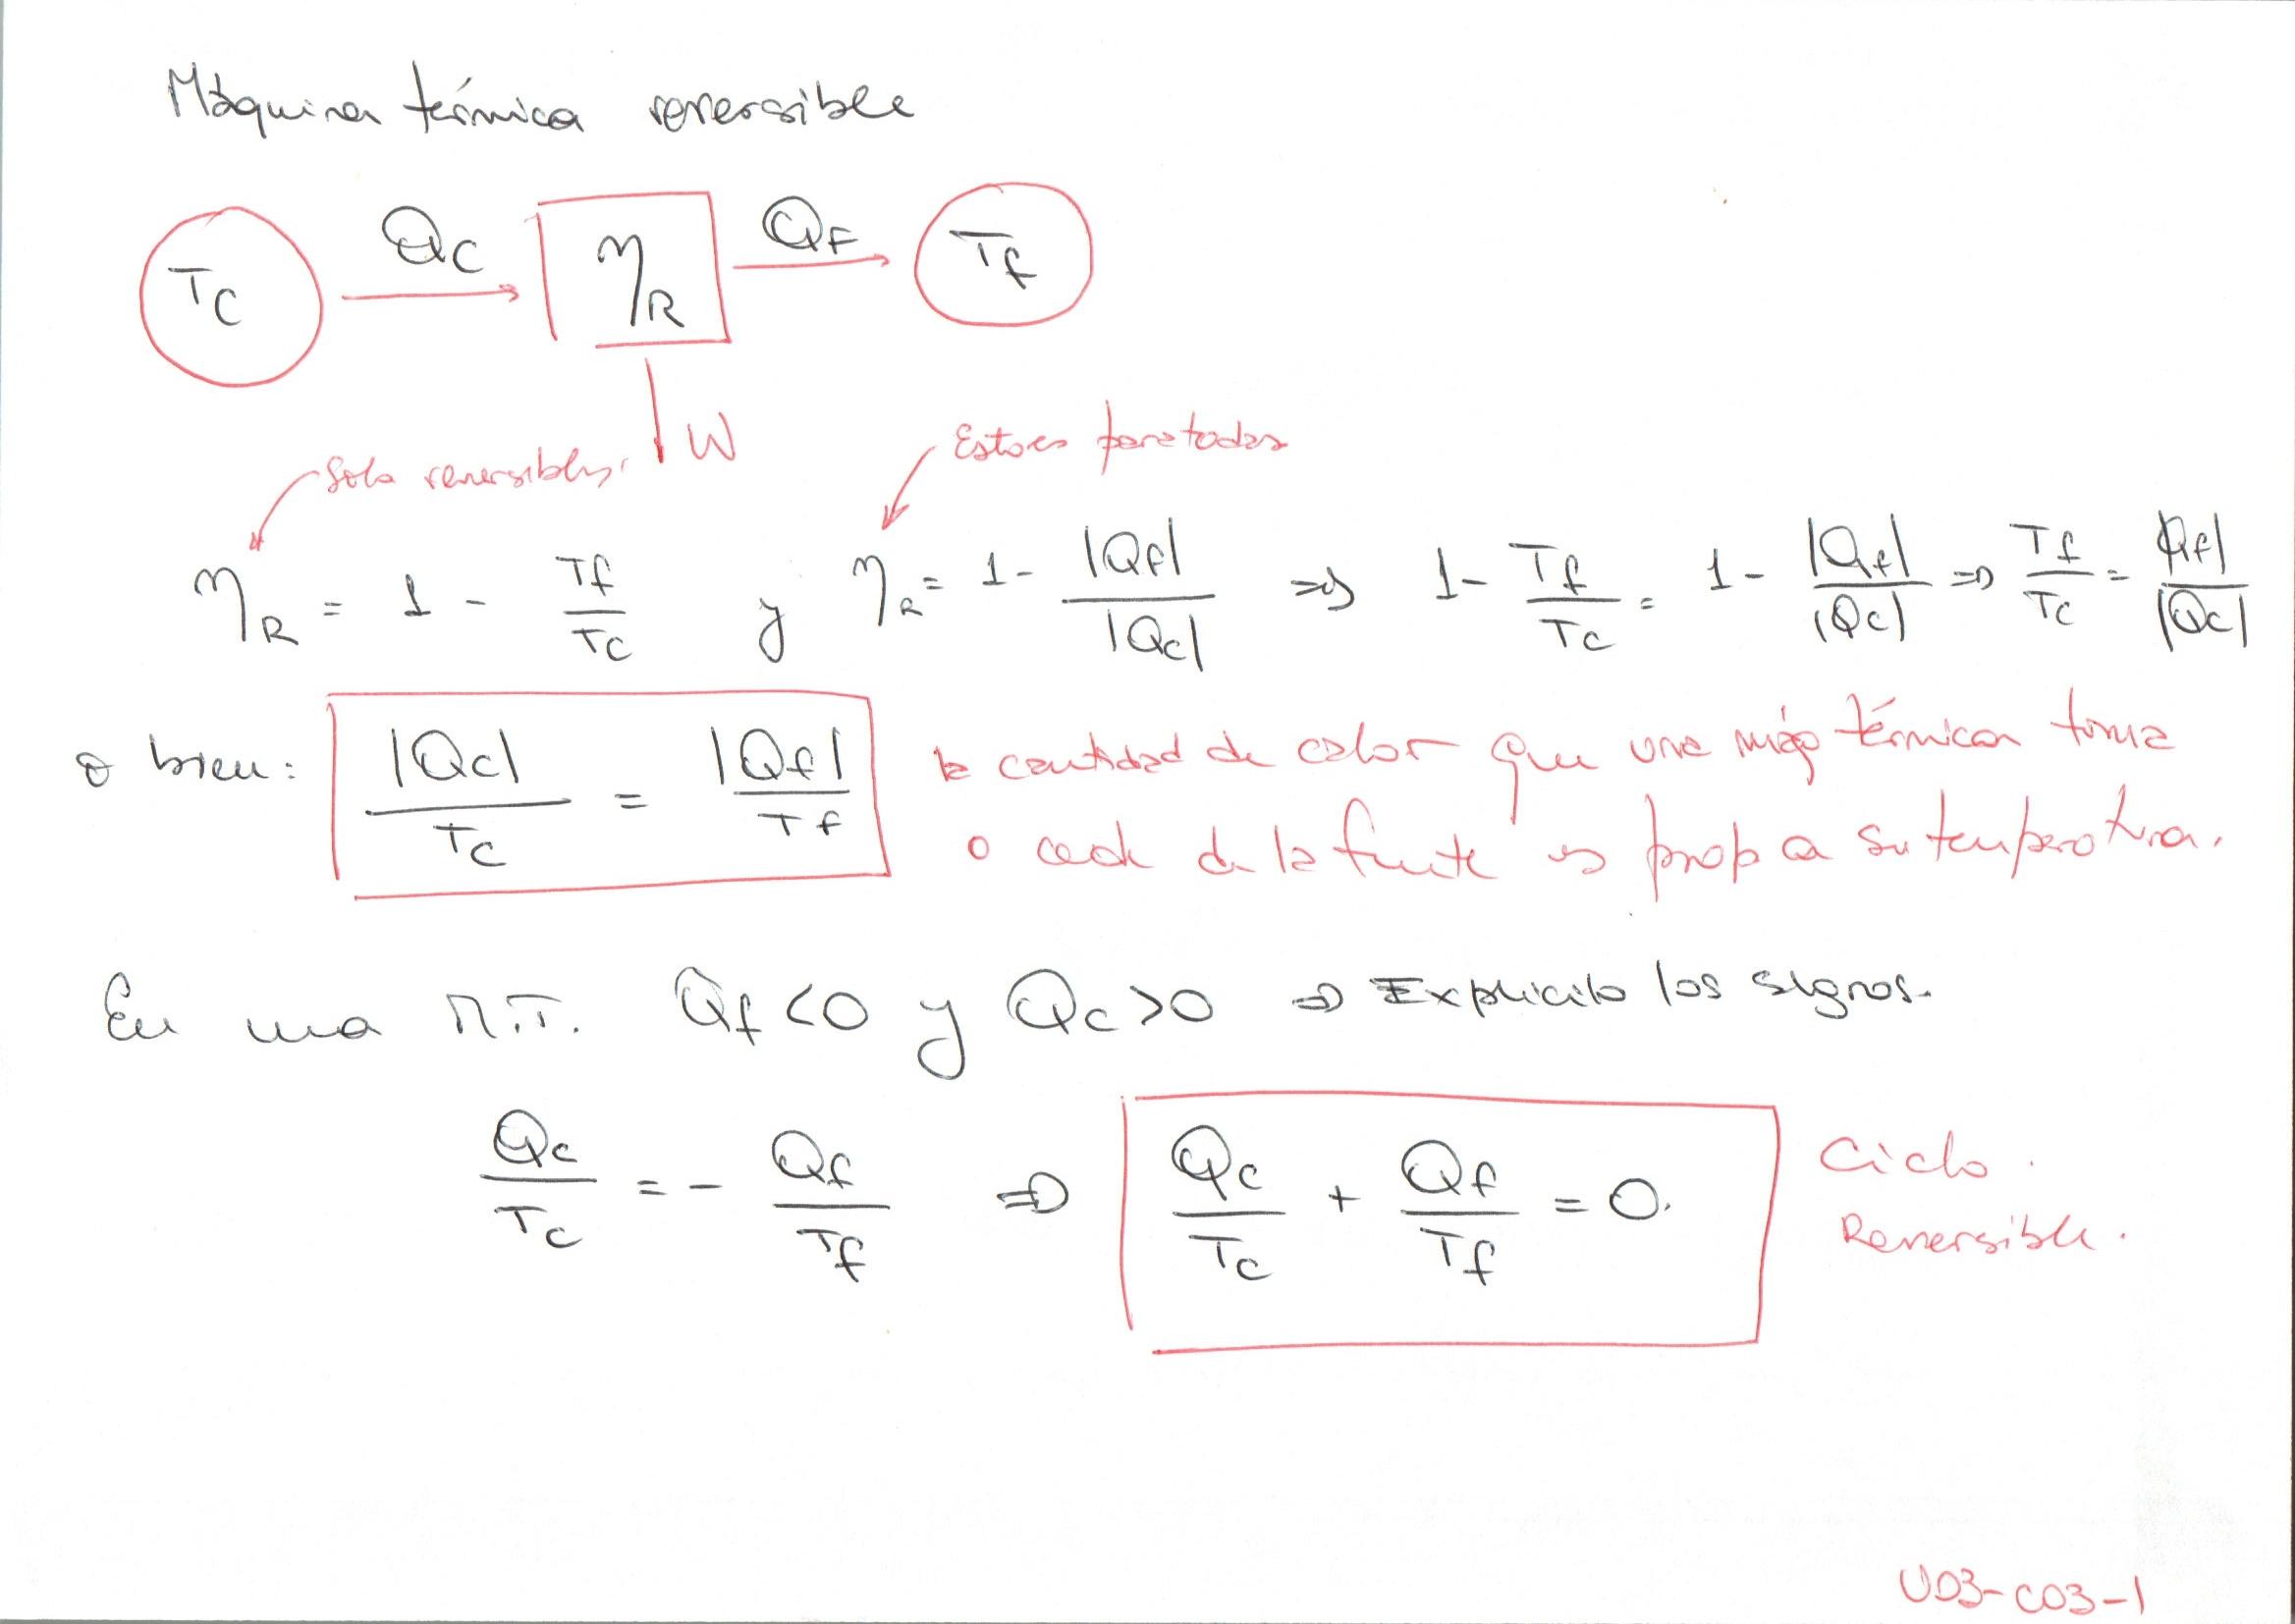 Máquina térmica reversible
Tc Qc ηR QF Tf
W
Solo reversibles.
Esto es para todas
ηR = 1 - Tf/Tc y ηR = 1 - |Qf|/|Qc| => 1 - Tf/Tc = 1 - |Qf|/|Qc| => Tf/Tc = |Qf|/|Qc|
o bien: |Qc|/Tc = |Qf|/Tf
la cantidad de calor que una máq térmica toma
o cede de la fuente es prop a su temperatura.
En una M.T. Qf<0 y Qc>0 => Explicito los signos.
Qc/Tc = - Qf/Tf => Qc/Tc + Qf/Tf = 0.
Ciclo
Reversible.
U03-C03-1